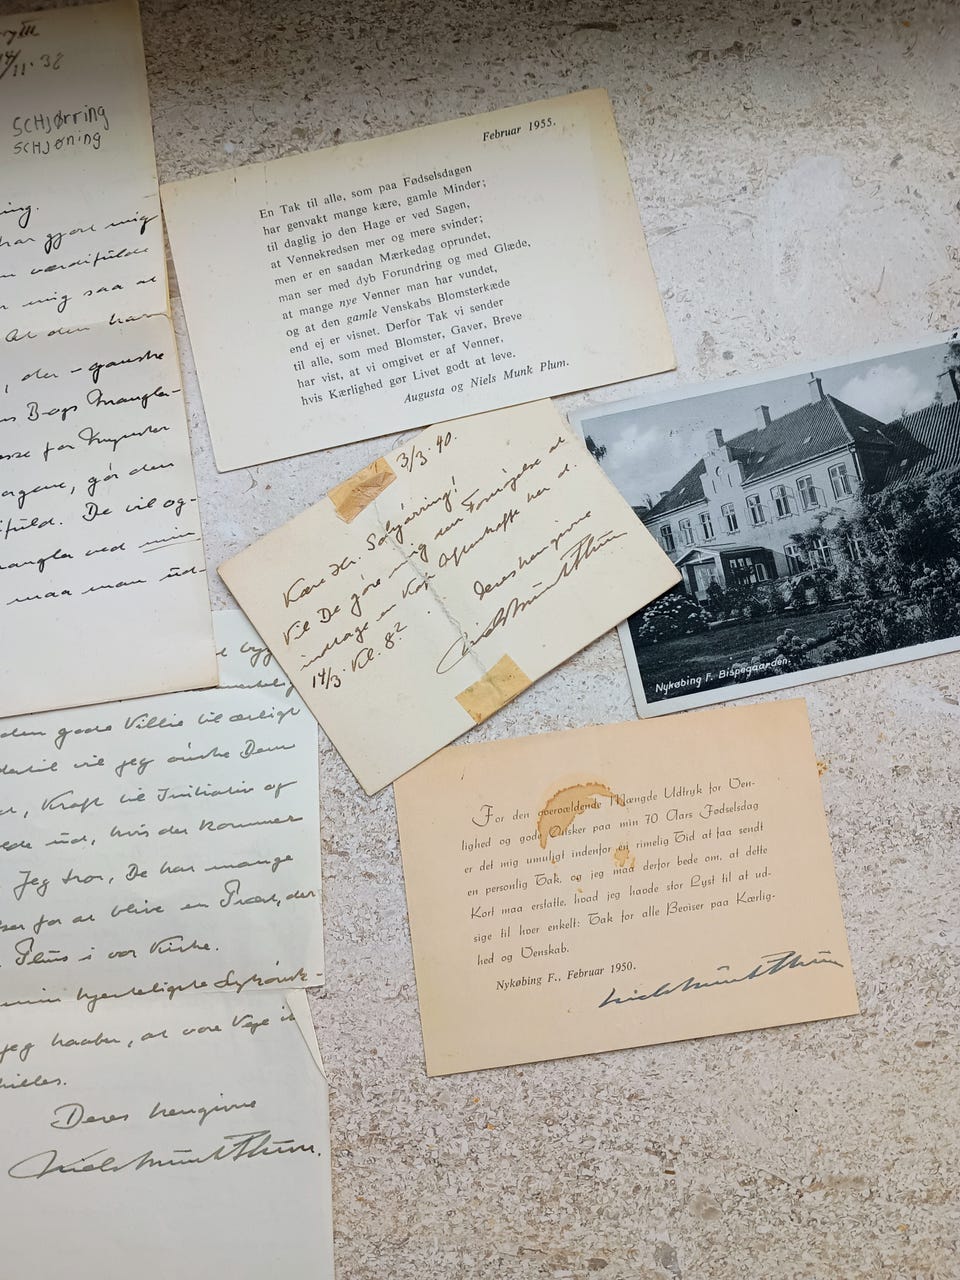 14/11-38
SCHJØRRING
SCHJØNING
har gjort mig
værdifulde
mig saa at
At den har
, der - ganske
Bogs Mangla-
for Knyster
, gør den
fuld. De vil og-
mangler ved min
maa man ud-
den gode Villie til ærligt
dertil vil jeg ønske Dem
, Kraft til Initiativ og
ud, hvis der kommer
Jeg tror, De har mange
for at blive en Præst, der
Plus i vor Kirke.
min hjerteligste Lykønsk-
jeg haaber, at vore Veje ik
skilles.
Deres hengivne
Niels Munk Plum.
Februar 1955.
En Tak til alle, som paa Fødselsdagen
har genvakt mange kære, gamle Minder;
til daglig jo den Hage er ved Sagen,
at Vennekredsen mer og mere svinder;
men er en saadan Mærkedag oprundet,
man ser med dyb Forundring og med Glæde,
at mange nye Venner man har vundet,
og at den gamle Venskabs Blomsterkæde
end ej er visnet. Derfor Tak vi sender
til alle, som med Blomster, Gaver, Breve
har vist, at vi omgivet er af Venner,
hvis Kærlighed gør Livet godt at leve.
Augusta og Niels Munk Plum.
3/3.40.
Kære Hr. Schjørring!
Vil De gøre mig den Fornøjelse at
indtage en Kop Aftenkaffe her d.
14/3 Kl. 8?
Deres hengivne
Niels Munk Plum
Nykøbing F. Bispegaarden.
For den overvældende Mængde Udtryk for Ven-
lighed og gode Ønsker paa min 70 Aars Fødselsdag
er det mig umuligt indenfor en rimelig Tid at faa sendt
en personlig Tak, og jeg maa derfor bede om, at dette
Kort maa erstatte, hvad jeg havde stor Lyst til at ud-
sige til hver enkelt: Tak for alle Beviser paa Kærlig-
hed og Venskab.
Nykøbing F., Februar 1950.
Niels Munk Plum